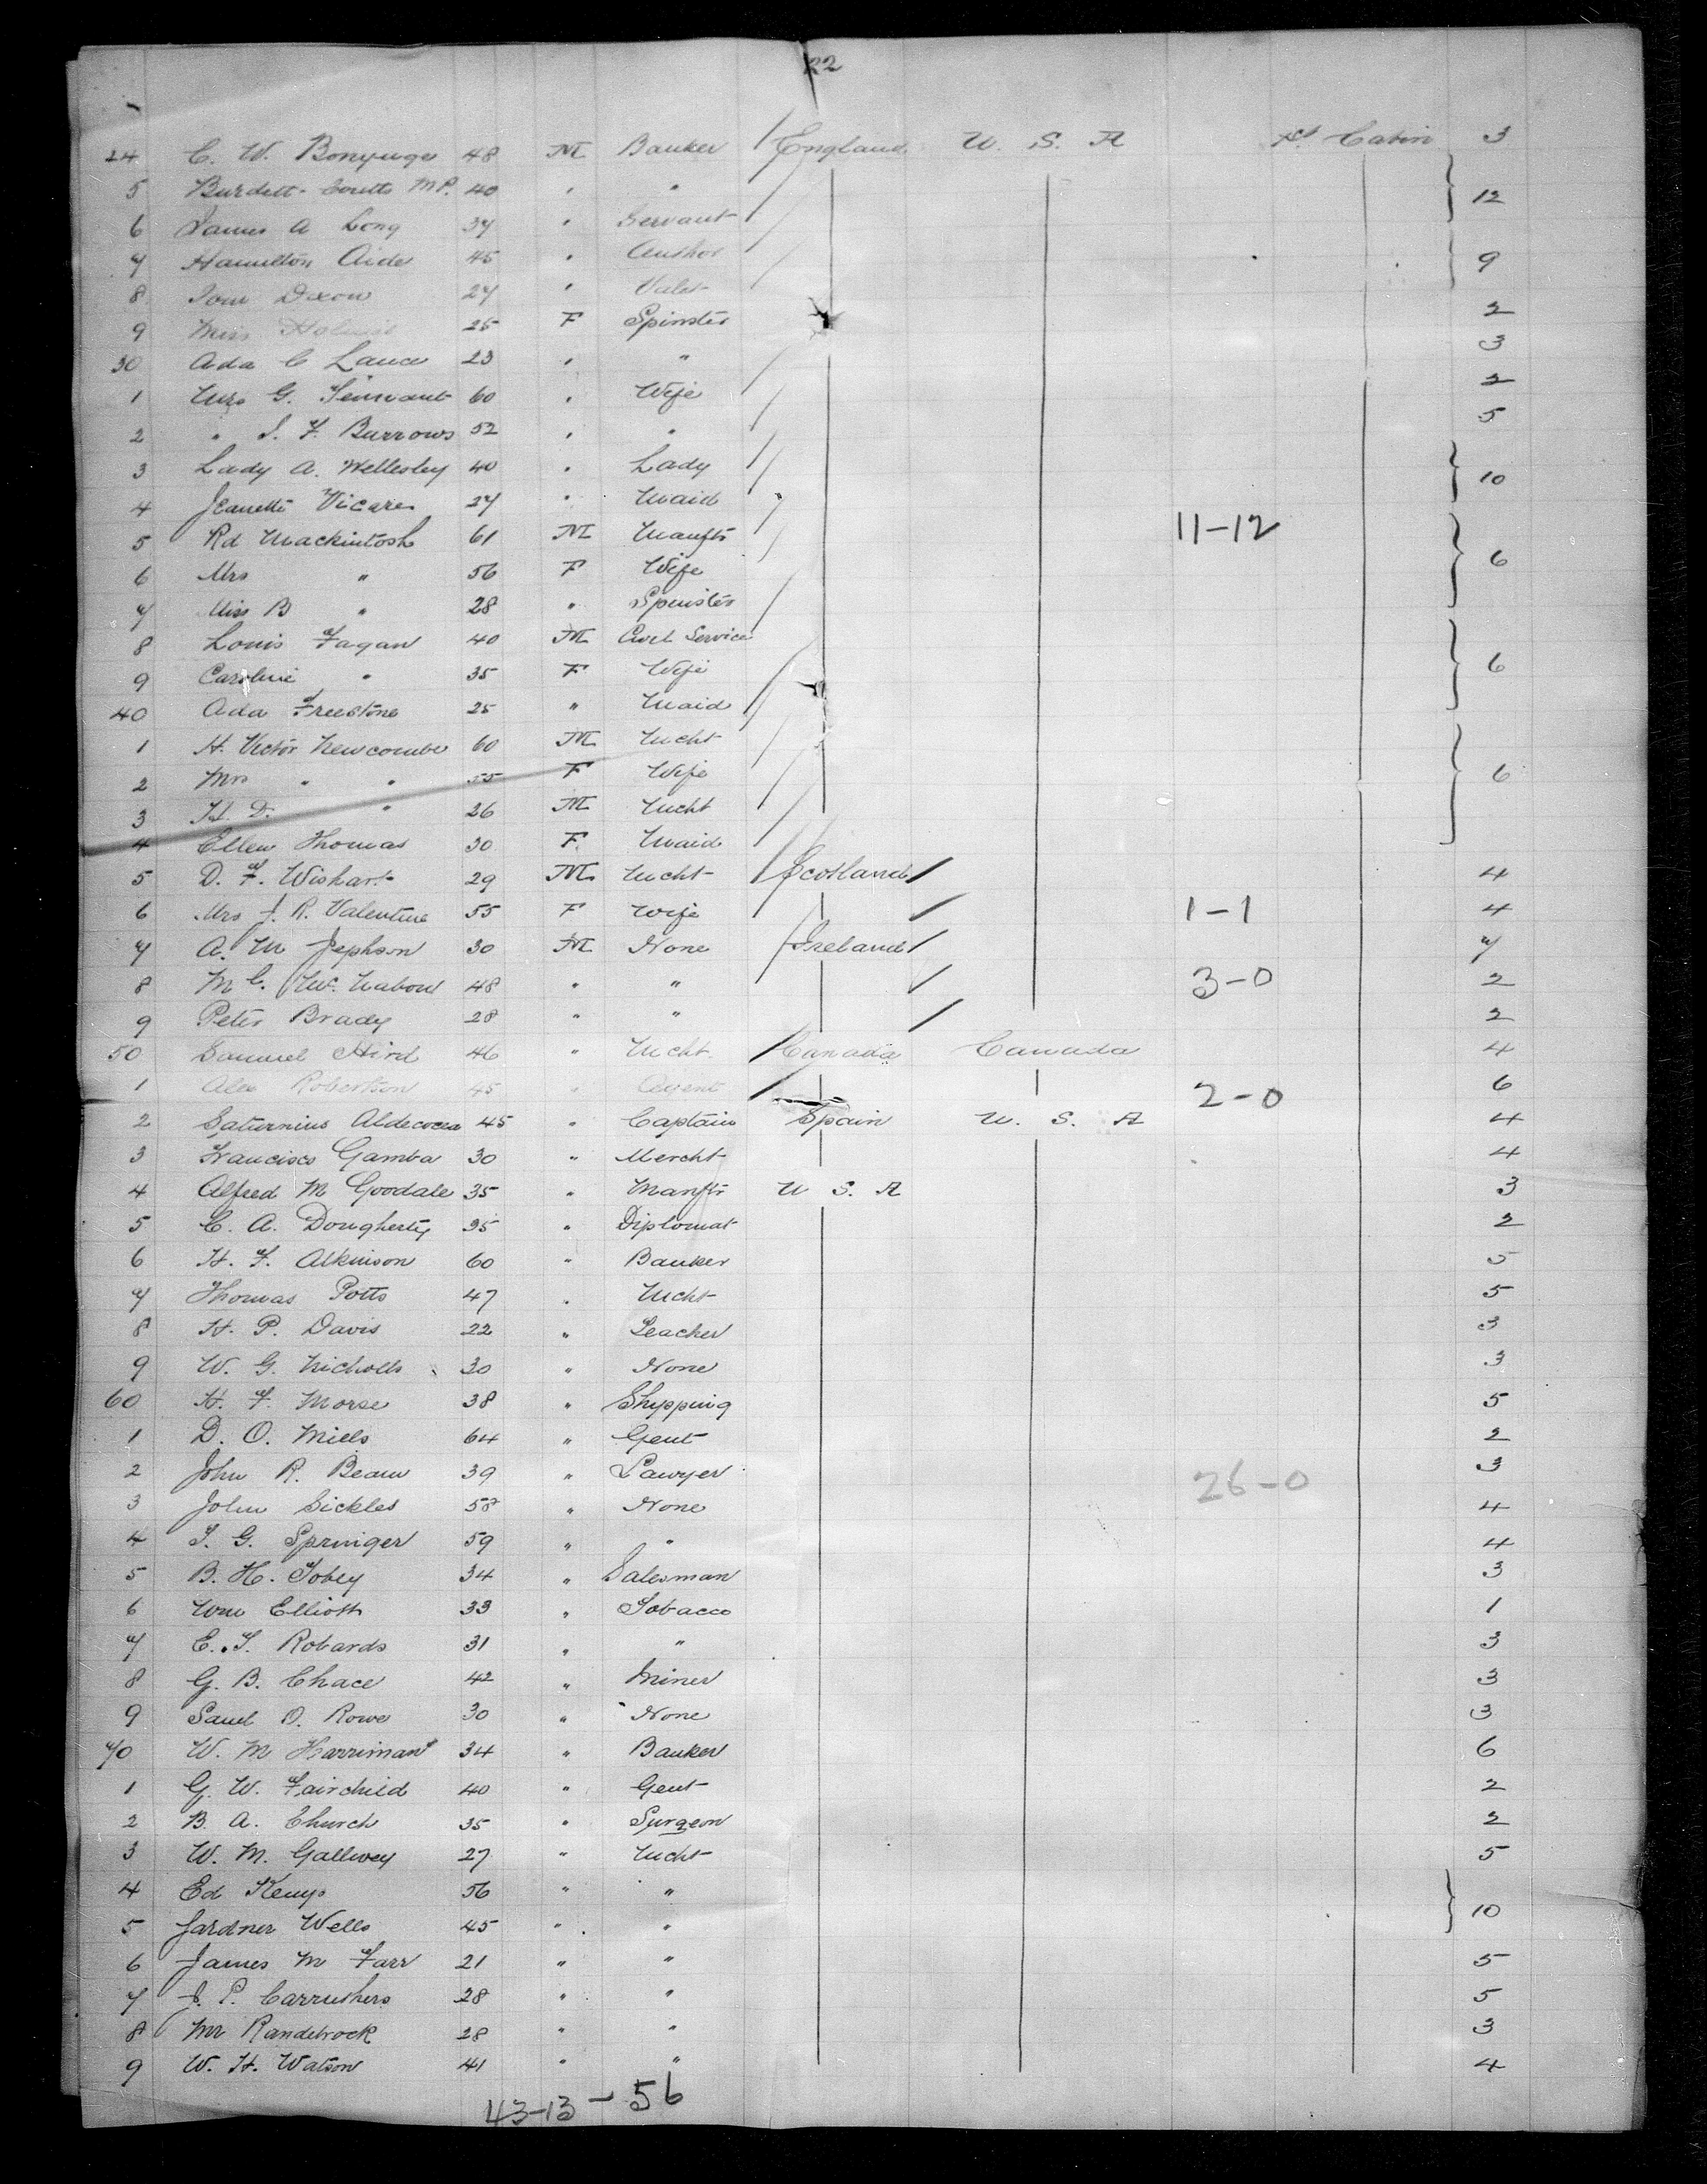 22
24 C. W. Bonynge 48 M Banker England U. S. A 1st Cabin 3
5 Burdett-Coutts M.P. 40 " " 12
6 James A Long 37 " Servant
7 Hamilton Aide 45 " Author 9
8 Tom Dixon 27 " Valet
9 Miss 25 F Spinster 2
30 Ada C Lance 23 " " 3
1 Mrs G. 60 " Wife 2
2 " S. F. Burrows 52 " " 5
3 Lady A. Wellesley 40 " Lady 10
4 Jeanette Vicares 27 " Maid
5 Rd Mackintosh 61 M Manftr 11-12
6 Mrs " 56 F Wife 6
7 Miss B " 28 " Spinster
8 Louis Fagan 40 M Civil Service
9 Caroline " 35 F Wife 6
40 Ada Freestone 25 " Maid
1 H. Victor Newcombe 60 M Mcht
2 Mrs " " 55 F Wife 6
3 H. D. " 26 M Mcht
4 Ellen Thomas 30 F Maid
5 D. F. Wishart 29 M Mcht Scotland 4
6 Mrs J. R. Valentine 55 F Wife 1-1 4
7 A. M Jephson 30 M None Ireland 7
8 M C. 48 " " 3-0 2
9 Peter Brady 28 " " 2
50 Samuel Hird 46 " Mcht Canada Canada 4
1 Alex Robertson 45 " Agent 2-0 6
2 Saturnius Aldecocea 45 " Captain Spain U. S. A 4
3 Francisco Gamba 30 " Mercht 4
4 Alfred M Goodale 35 " Manftr U S. A 3
5 C. A. Dougherty 35 " Diplomat 2
6 H. F. Atkinson 60 " Banker 5
7 Thomas Potts 47 " Mcht 5
8 H. P. Davis 22 " Teacher 3
9 W. G. Nicholls 30 " None 3
60 H. F. Morse 38 " Shipping 5
1 D. O. Mills 64 " Gent 2
2 John R. Beam 39 " Lawyer 3
26-0
3 John Sickles 58 " None 4
4 T. G. Springer 59 " " 4
5 B. H. Tobey 34 " Salesman 3
6 Wm Elliott 33 " Tobacco 1
7 E. T. Robards 31 " " 3
8 G. B. Chace 42 " Miner 3
9 Saml O. Rowe 30 " None 3
70 W. M Harriman 34 " Banker 6
1 G. W. Fairchild 40 " Gent 2
2 B. A. Church 35 " Surgeon 2
3 W. M. Gallwey 27 " Mcht 5
4 Ed Kemp 56 " " 10
5 Gardner Wells 45 " "
6 James M Farr 21 " " 5
7 J. P. Carruthers 28 " " 5
8 Mr Randebrock 28 " " 3
9 W. H. Watson 41 " " 4
43-13-56